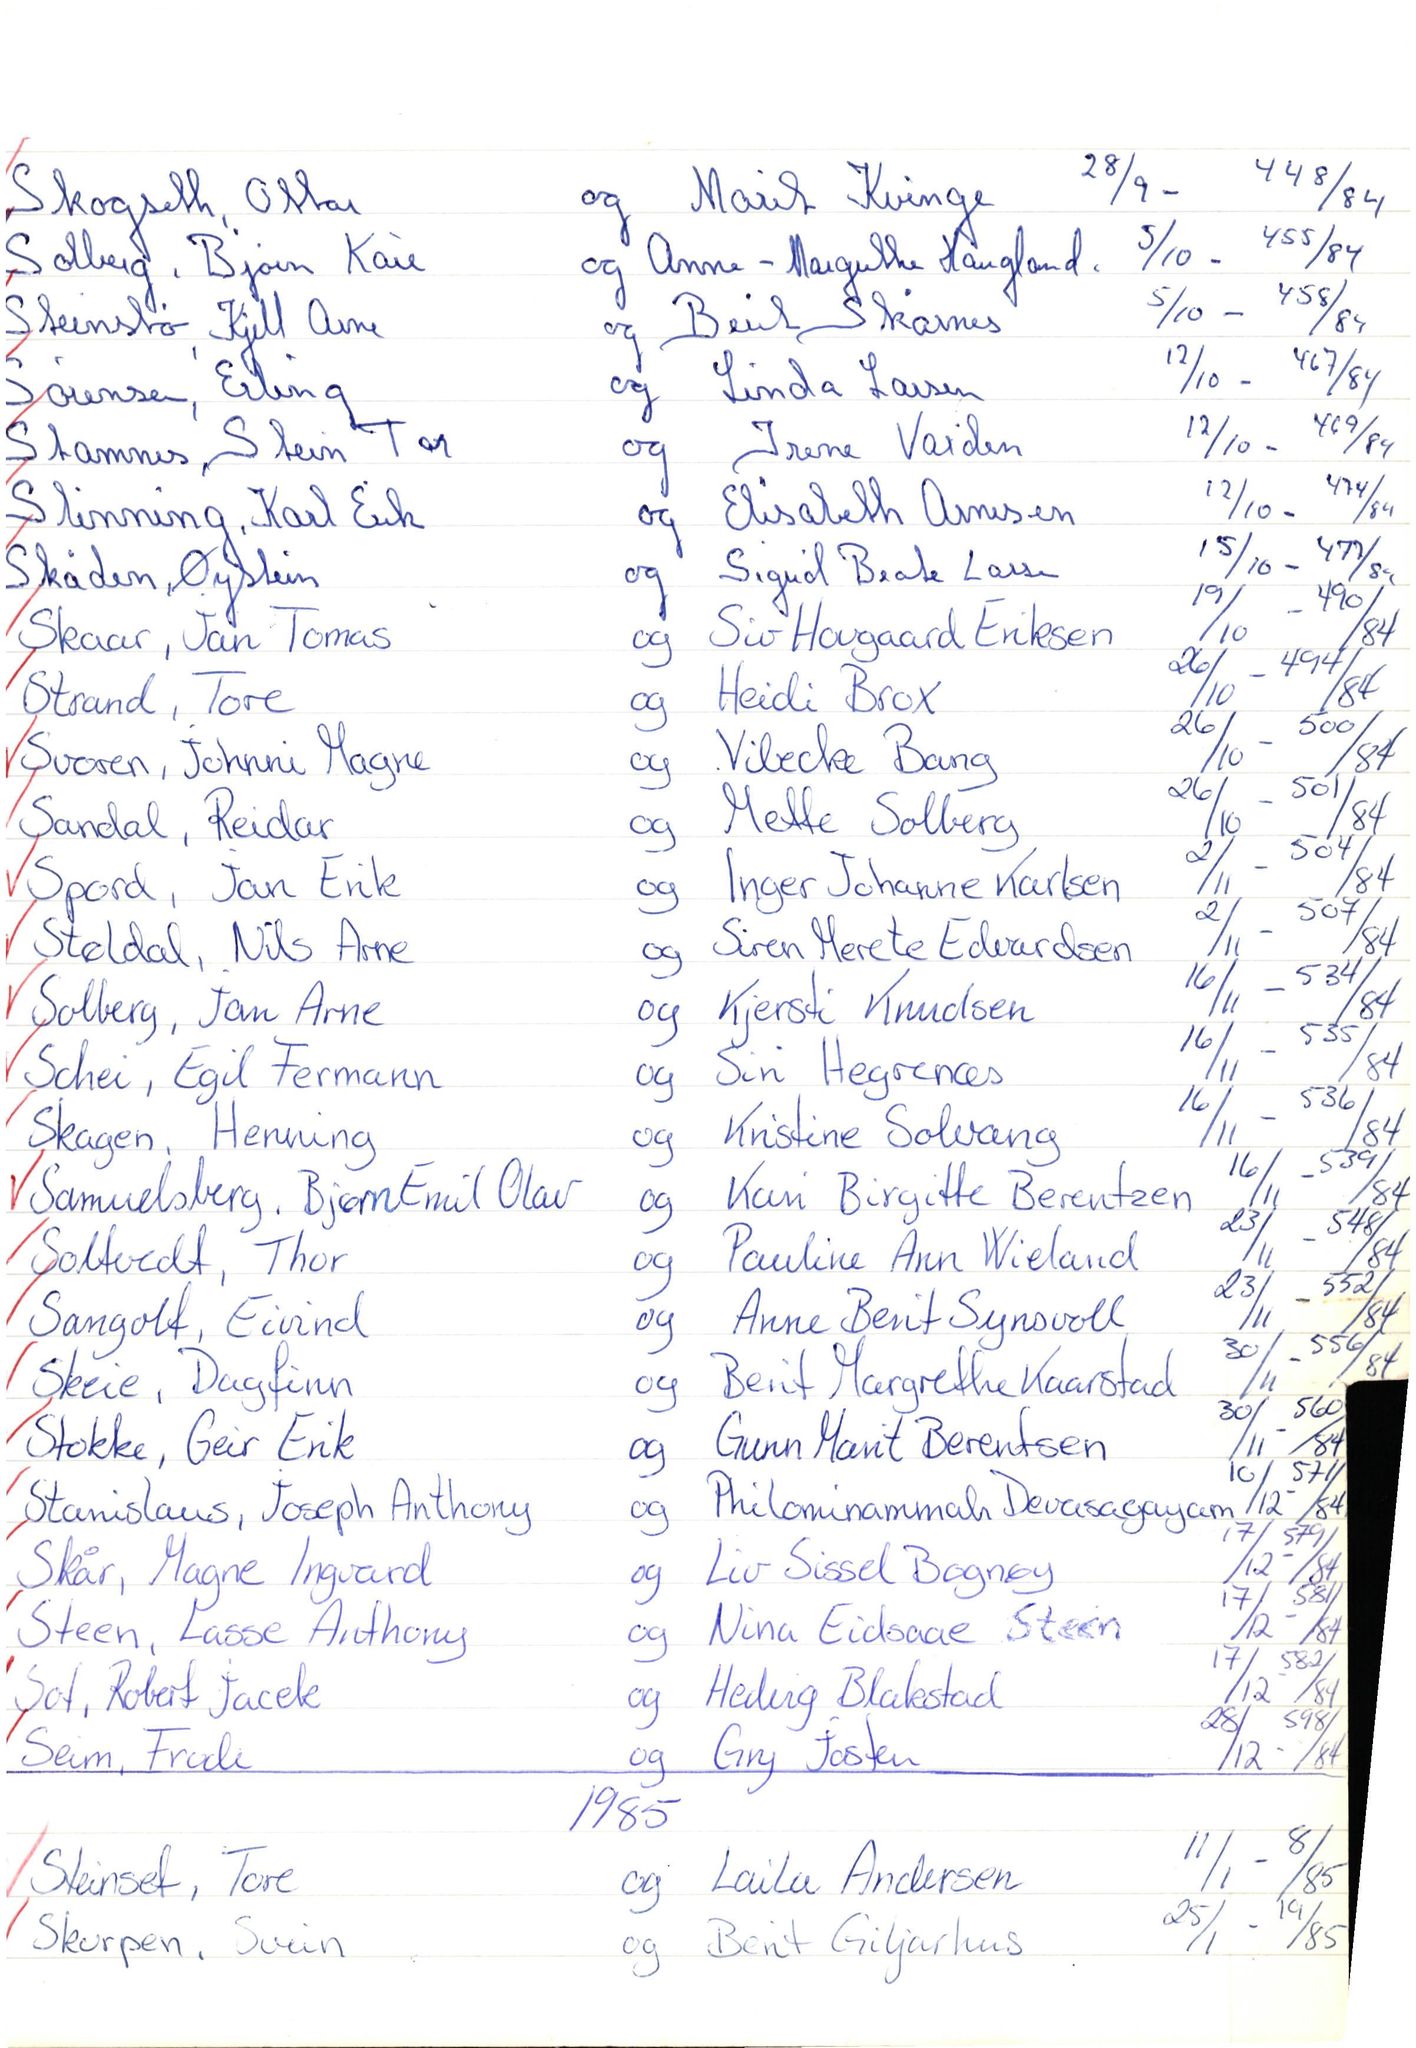 Skogseth, Ottar og Marit Kvinge 28/9 - 448/84
Solberg, Bjørn Kåre og Anne-Margrethe Haugland. 5/10 - 455/84
Steinstø, Kjell Arne og Berit Skårnes 5/10 - 458/84
Sørensen, Erling og Linda Larsen 12/10 - 467/84
Stamnes, Stein Tor og Irene Vaiden 12/10 - 469/84
Stinning, Karl Erik og Elisabeth Arnesen 12/10 - 474/84
Skåden, Øystein og Sigrid Beate Larsen 15/10 - 477/84
Skaar, Jan Tomas og Siv Hovgaard Eriksen 19/10 - 490/84
Strand, Tore og Heidi Brox 26/10 - 494/84
Svoren, Johnni Magne og Vibecke Bang 26/10 - 500/84
Sandal, Reidar og Mette Solberg 26/10 - 501/84
Spord, Jan Erik og Inger Johanne Karlsen 2/11 - 504/84
Støldal, Nils Arne og Siren Merete Edvardsen 2/11 - 507/84
Solberg, Jan Arne og Kjersti Knudsen 16/11 - 534/84
Schei, Egil Fermann og Siri Hegrenæs 16/11 - 535/84
Skagen, Henning og Kristine Solvang 16/11 - 536/84
Samuelsberg, Bjørn Emil Olav og Kari Birgitte Berentzen 16/11 - 539/84
Soltvedt, Thor og Pauline Ann Wieland 23/11 - 548/84
Sangolt, Eivind og Anne Berit Synsvoll 23/11 - 552/84
Skeie, Dagfinn og Berit Margrethe Kaarstad 30/11 - 556/84
Stokke, Geir Erik og Gunn Marit Berentsen 30/11 - 560/84
Stanislaus, Joseph Anthony og Philominammah Devasagayam 10/12 - 571/84
Skår, Magne Ingvard og Liv Sissel Bognøy 17/12 - 579/84
Steen, Lasse Anthony og Nina Eidsaae Steen 17/12 - 581/84
Sot, Robert Jacek og Hedvig Blakstad 17/12 - 582/84
Seim, Frode og Gry Josten 28/12 - 598/84
1985
Steinset, Tore og Laila Andersen 11/1 - 8/85
Skurpen, Svein og Berit Giljarhus 25/1 - 19/85